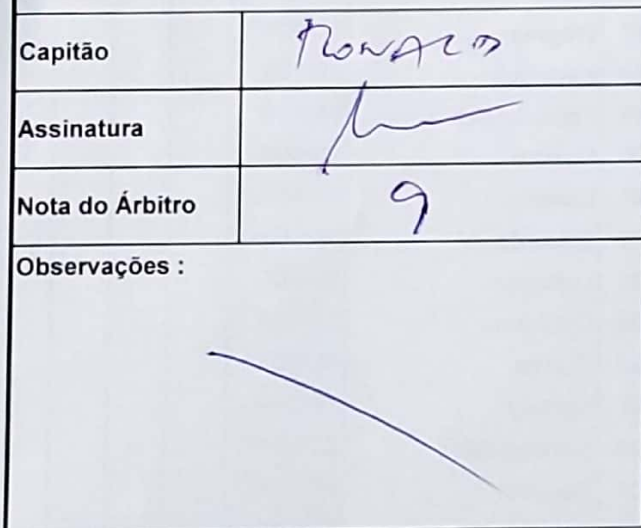 Capitão RONALD
Assinatura
Nota do Árbitro 9
Observações :